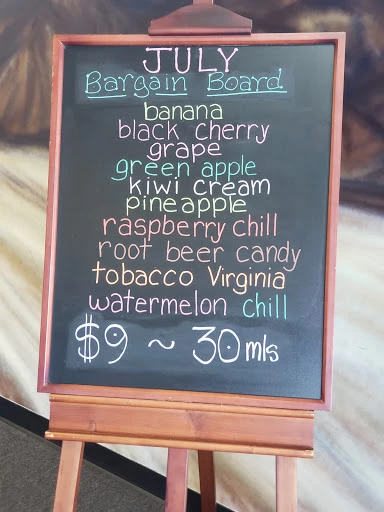 JULY
Bargain Board
banana
black cherry
grape
green apple
kiwi cream
pineapple
raspberry chill
root beer candy
tobacco Virginia
watermelon chill
$9 ~ 30 mls